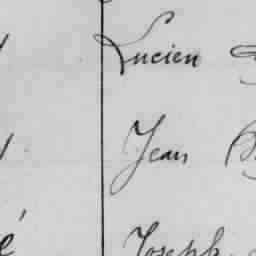 Lucien
Jean
é Joseph